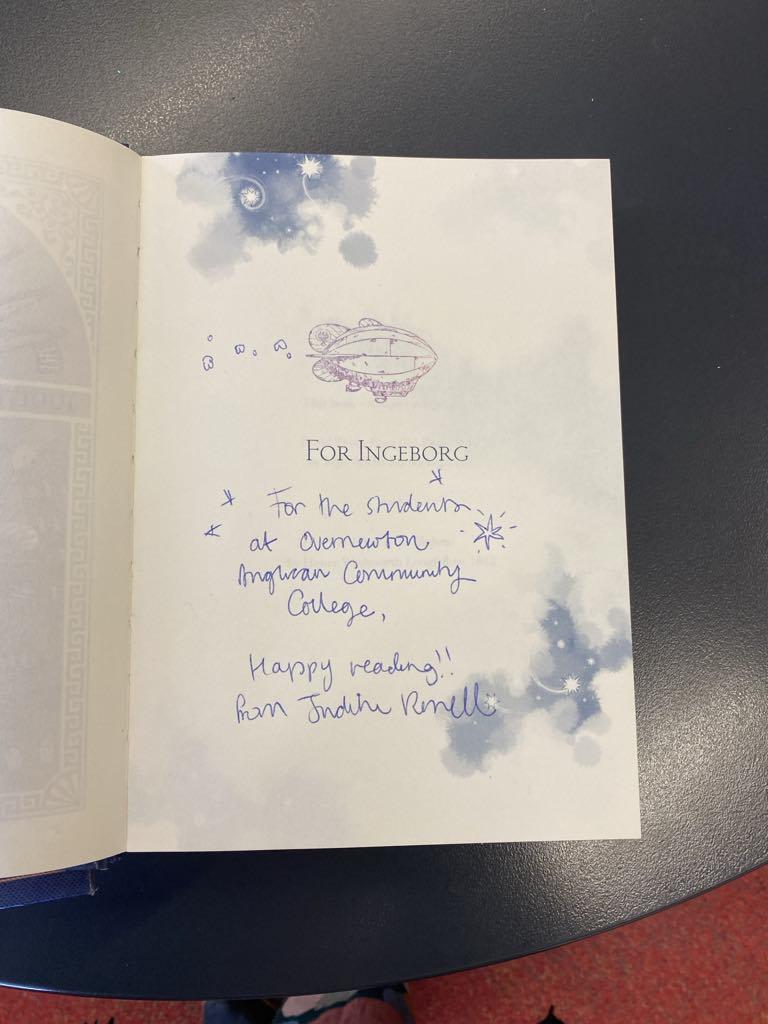 For Ingeborg
For the students
at Overnewton
Anglican Community
College,
Happy reading!!
from Judith Rossell